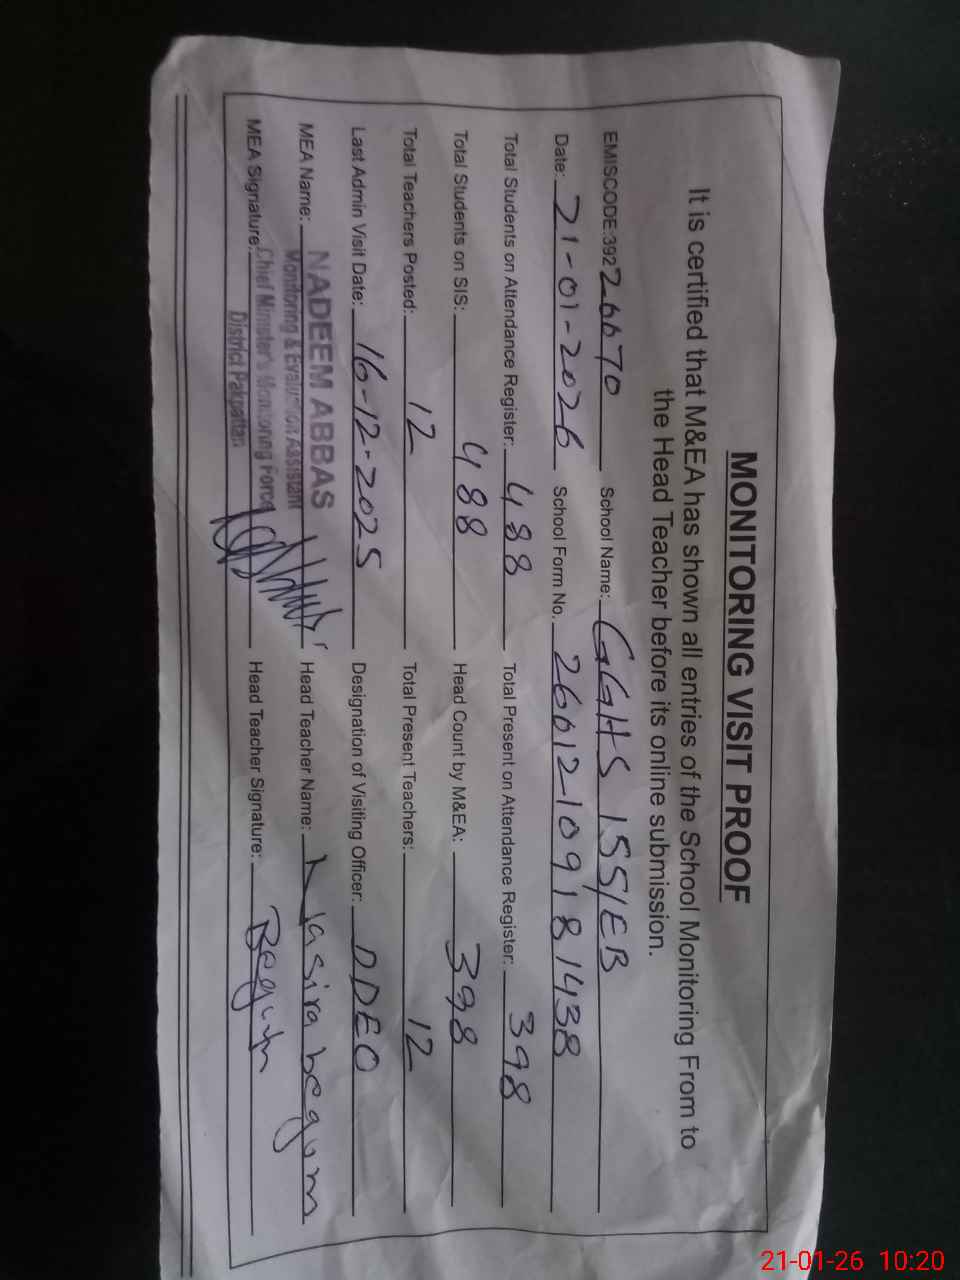 MONITORING VISIT PROOF
It is certified that M&EA has shown all entries of the School Monitoring From to
the Head Teacher before its online submission.
EMISCODE:39226070 School Name: GGHS 155/EB
Date: 21-01-2026 School Form No. 2601210918 1438
Total Students on Attendance Register: 488 Total Present on Attendance Register: 398
Total Students on SIS: 488 Head Count by M&EA: 398
Total Teachers Posted: 12 Total Present Teachers: 12
Last Admin Visit Date: 16-12-2025 Designation of Visiting Officer: DDEO
MEA Name: NADEEM ABBAS Head Teacher Name: Nasira begum
Monitoring & Evaluation Assistant
MEA Signature: Chief Minister's Monitoring Force Head Teacher Signature: Begum
District Pakpattan
21-01-26 10:20